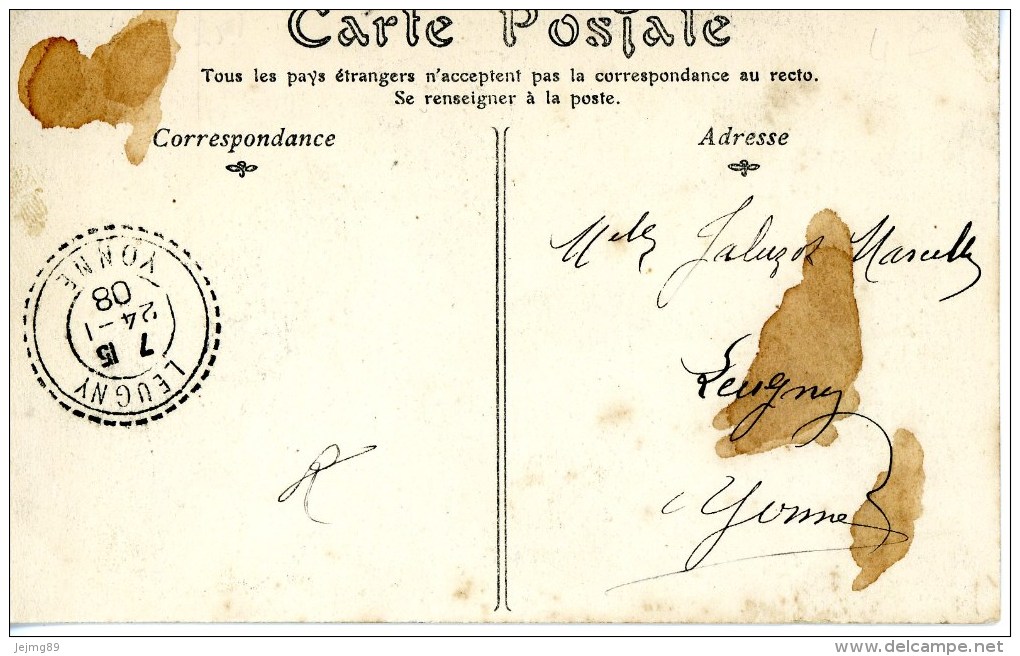 Carte Postale
Tous les pays étrangers n'acceptent pas la correspondance au recto.
Se renseigner à la poste.
Correspondance
Adresse
Melle Jaluzot Marcelle
Leugny
Yonne
LEUGNY
7 15
24 - 1
08
YONNE
R
Jejmg89
www.delcampe.net